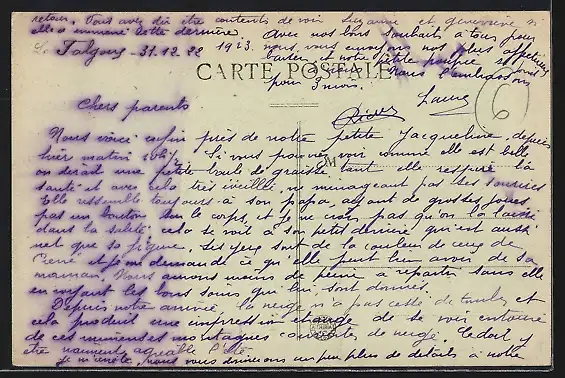 retour. Vous avez dû être contents de voir Suzanne et Geneviève si
elle a emmené cette dernière. Avec nos bons souhaits à tous pour
Le Falgoux - 31.12.22 1923. nous vous envoyons nos plus affectueux
baisers et notre petite poupée se joint
CARTE POSTALE
à nous. Nous l'embrassons
pour 3 mois.
Chers parents
Pierre Laure
6
Nous voici enfin près de notre petite Jacqueline, depuis
hier matin 10h½. Si vous pouviez voir comme elle est belle,
on dirait une petite boule de graisse tant elle respire la
santé et avec cela très éveillée, ne ménageant pas ses sourires
Elle ressemble toujours à son papa, ayant de grosses joues
pas un bouton sur le corps, et je ne crois pas qu'on la laisse
dans la saleté, cela se voit à son petit derrière qui est aussi
net que sa figure. Ses yeux sont de la couleur de ceux de
Pierre et je me demande ce qu'elle peut bien avoir de sa
maman. Nous aurons moins de peine à repartir sans elle
en voyant les bons soins qui lui sont donnés.
Depuis notre arrivée la neige n'a pas cessé de tomber et
cela produit une impression étrange de se voir entouré
de ces immenses montagnes couvertes de neige. Ce doit y
être vraiment agréable l'été.
Je m'arrête, nous vous donnerons un peu plus de détails à notre